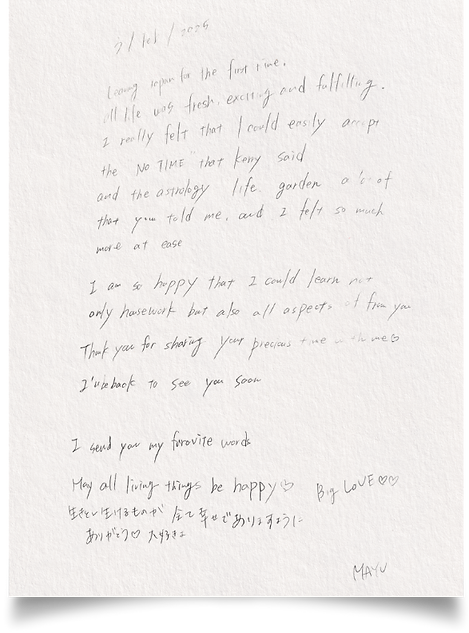 2/Feb/2025
leaving Japan for the first time.
all life was fresh, exciting and fulfilling.
I really felt that I could easily accept
the "NO TIME" that Kerry said
and the astrology life garden a lot of
that you told me, and I felt so much
more at ease
I am so happy that I could learn not
only housework but also all aspects of from you
Thank you for sharing your precious time with me♡
I'll be back to see you soon
I send you my favorite words
May all living things be happy♡ Big LOVE♡♡
生きとし生けるものが 全て幸せでありますように
ありがとう♡ 大好きよ
MAYU